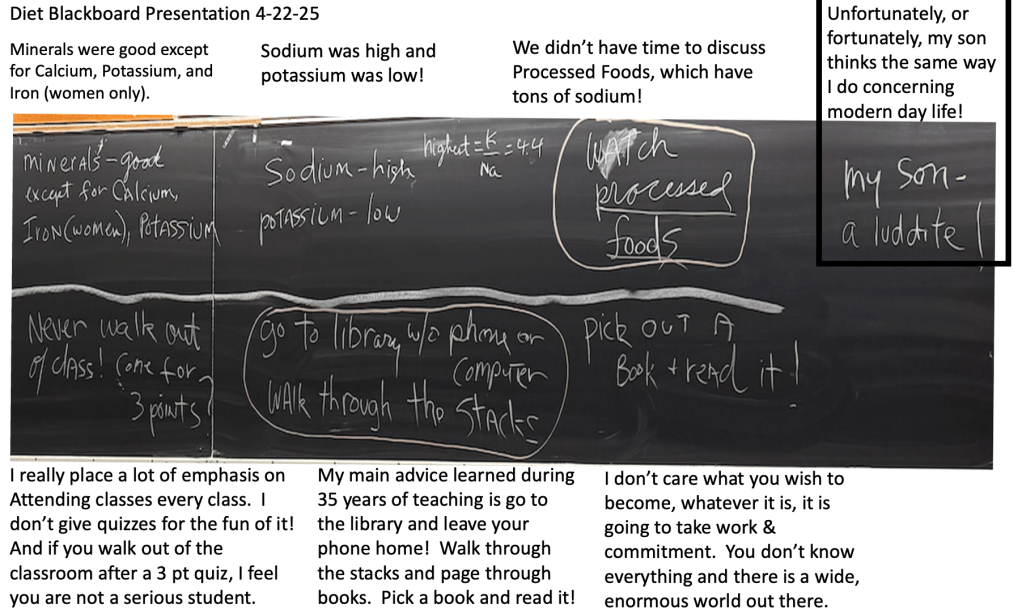 Diet Blackboard Presentation 4-22-25
Minerals were good except
for Calcium, Potassium, and
Iron (women only).
Sodium was high and
potassium was low!
We didn't have time to discuss
Processed Foods, which have
tons of sodium!
Unfortunately, or
fortunately, my son
thinks the same way
I do concerning
modern day life!
minerals - good
except for Calcium,
Iron (women), Potassium
Sodium - high
potassium - low
highest = K/Na = 4.4
WATCH
processed
foods
my son -
a luddite!
Never walk out
of class! Come for
3 points!
go to library w/o phone or
computer
WALK through the STACKS
pick out A
Book + read it!
I really place a lot of emphasis on
Attending classes every class.  I
don't give quizzes for the fun of it!
And if you walk out of the
classroom after a 3 pt quiz, I feel
you are not a serious student.
My main advice learned during
35 years of teaching is go to
the library and leave your
phone home!  Walk through
the stacks and page through
books.  Pick a book and read it!
I don't care what you wish to
become, whatever it is, it is
going to take work &
commitment.  You don't know
everything and there is a wide,
enormous world out there.